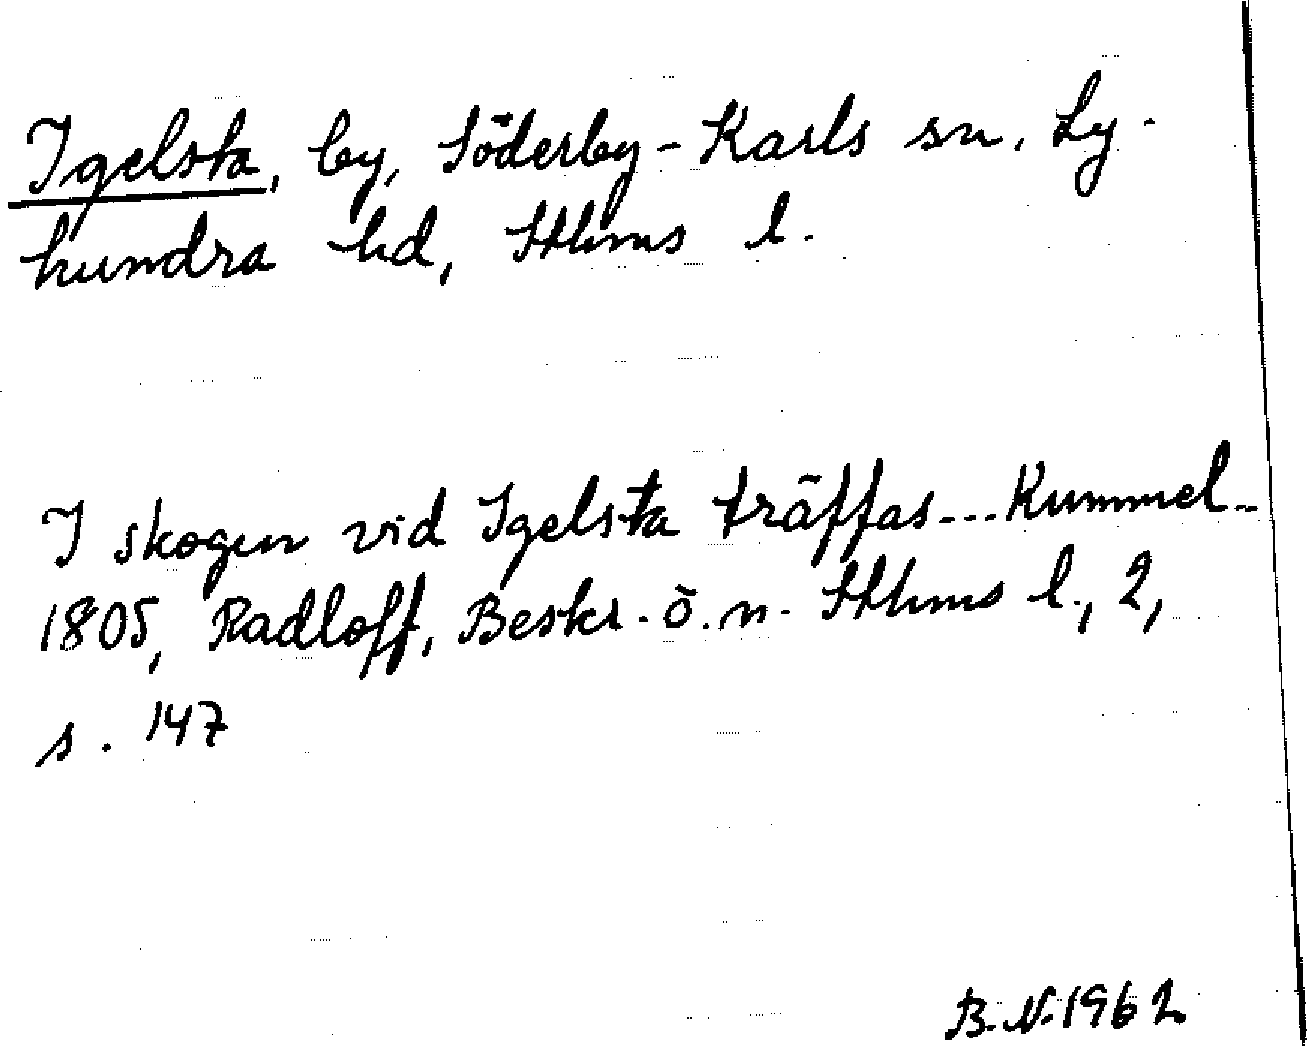 Igelsta, by, Söderby-Karls sn, Ly-
hundra hd, Sthms l.
I skogen vid Igelsta träffas... Kummel..
1805, Radloff, Beskr. ö. n. Sthms l., 2,
s. 147
B.N. 1962